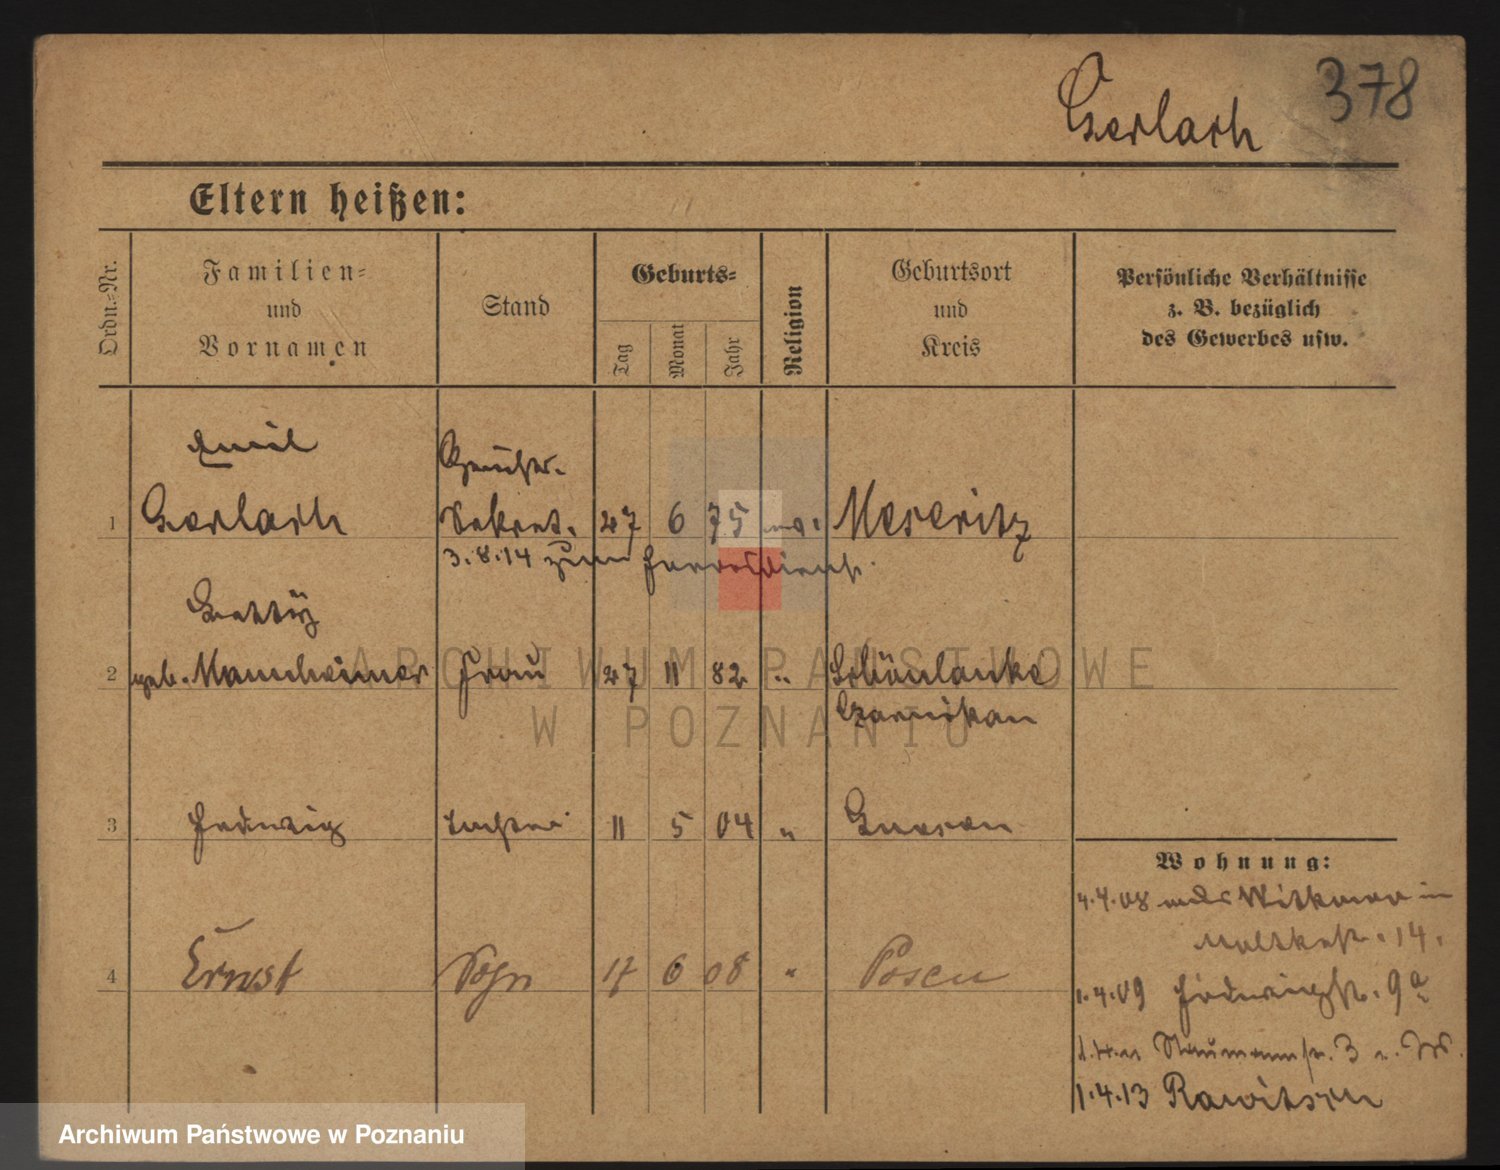 378
Gerlach
Eltern heißen:
Ordn.-Nr.
Familien-
und
Vornamen
Stand
Geburts-
Tag
Monat
Jahr
Religion
Geburtsort
und
Kreis
Persönliche Verhältnisse
z. B. bezüglich
des Gewerbes usw.
Emil
Gerlach
Gerichts-
1 Sekret. 27 6 75 Meseritz
3.8.14 zum Heeresdienst.
geb. Mannheimer
2 Frau 27 11 82 " Schönlanke
Czarnikau
3 Hedwig Tochter 11 5 04 " Gnesen
4 Ernst Sohn 17 6 08 " Posen
Wohnung:
4.4.08 Witkower in
Moltkestr. 14.
1.4.09 Hedwigstr. 9a
Naumannstr. 3
1.4.13 Rawitsch
ARCHIWUM PAŃSTWOWE
W POZNANIU
Archiwum Państwowe w Poznaniu